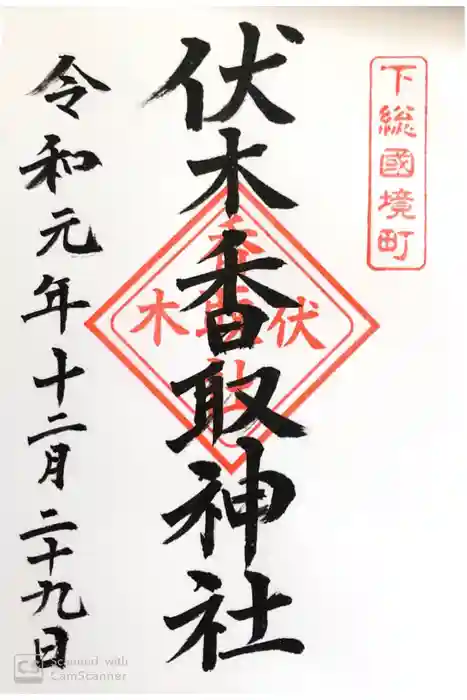 下総國境町
伏木香取神社
伏木
香取
社
令和元年十二月二十九日
CS Scanned with
CamScanner